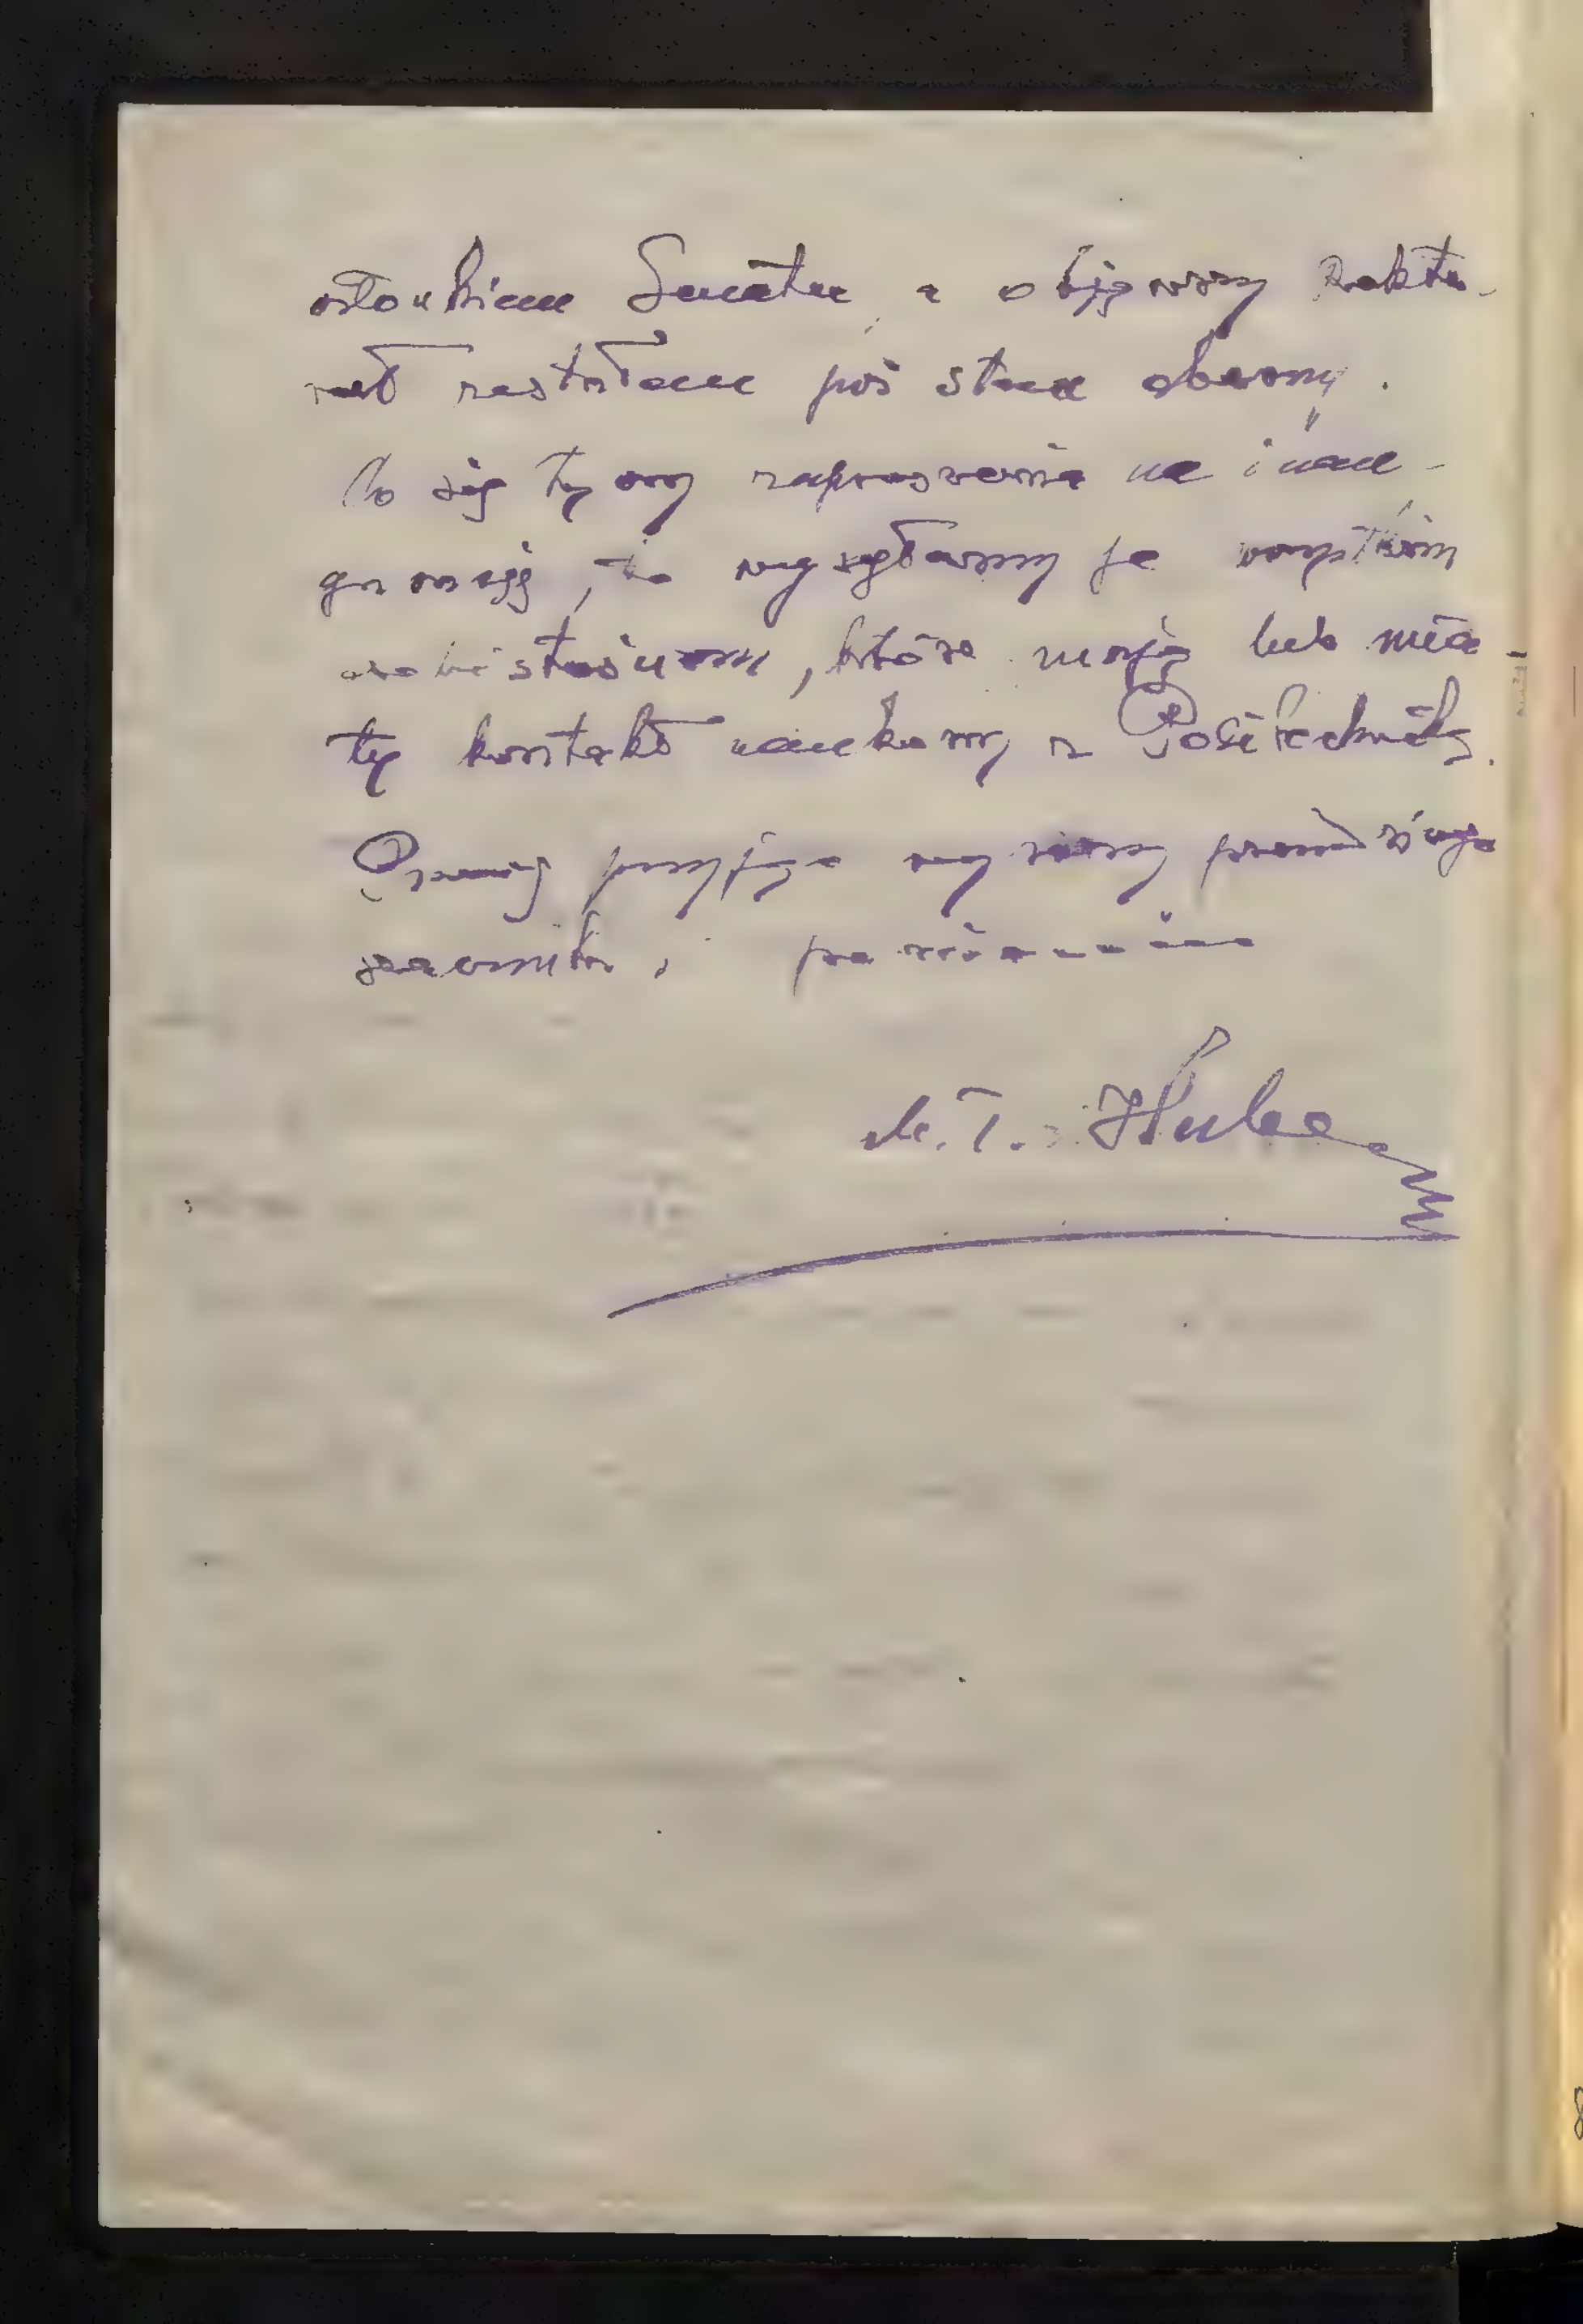 członkiem Senatu, a objąwszy Rekto-
rat zastałem już stan obecny.
Co się tyczy zaproszenia na inau-
guracyję, to wysyłamy je wszystkim
osobistościom, które mają lub mia-
ły kontakt naukowy z Politechniką.
Proszę przyjąć wyrazy prawdziwego
szacunku i poważania
M. T. Huber